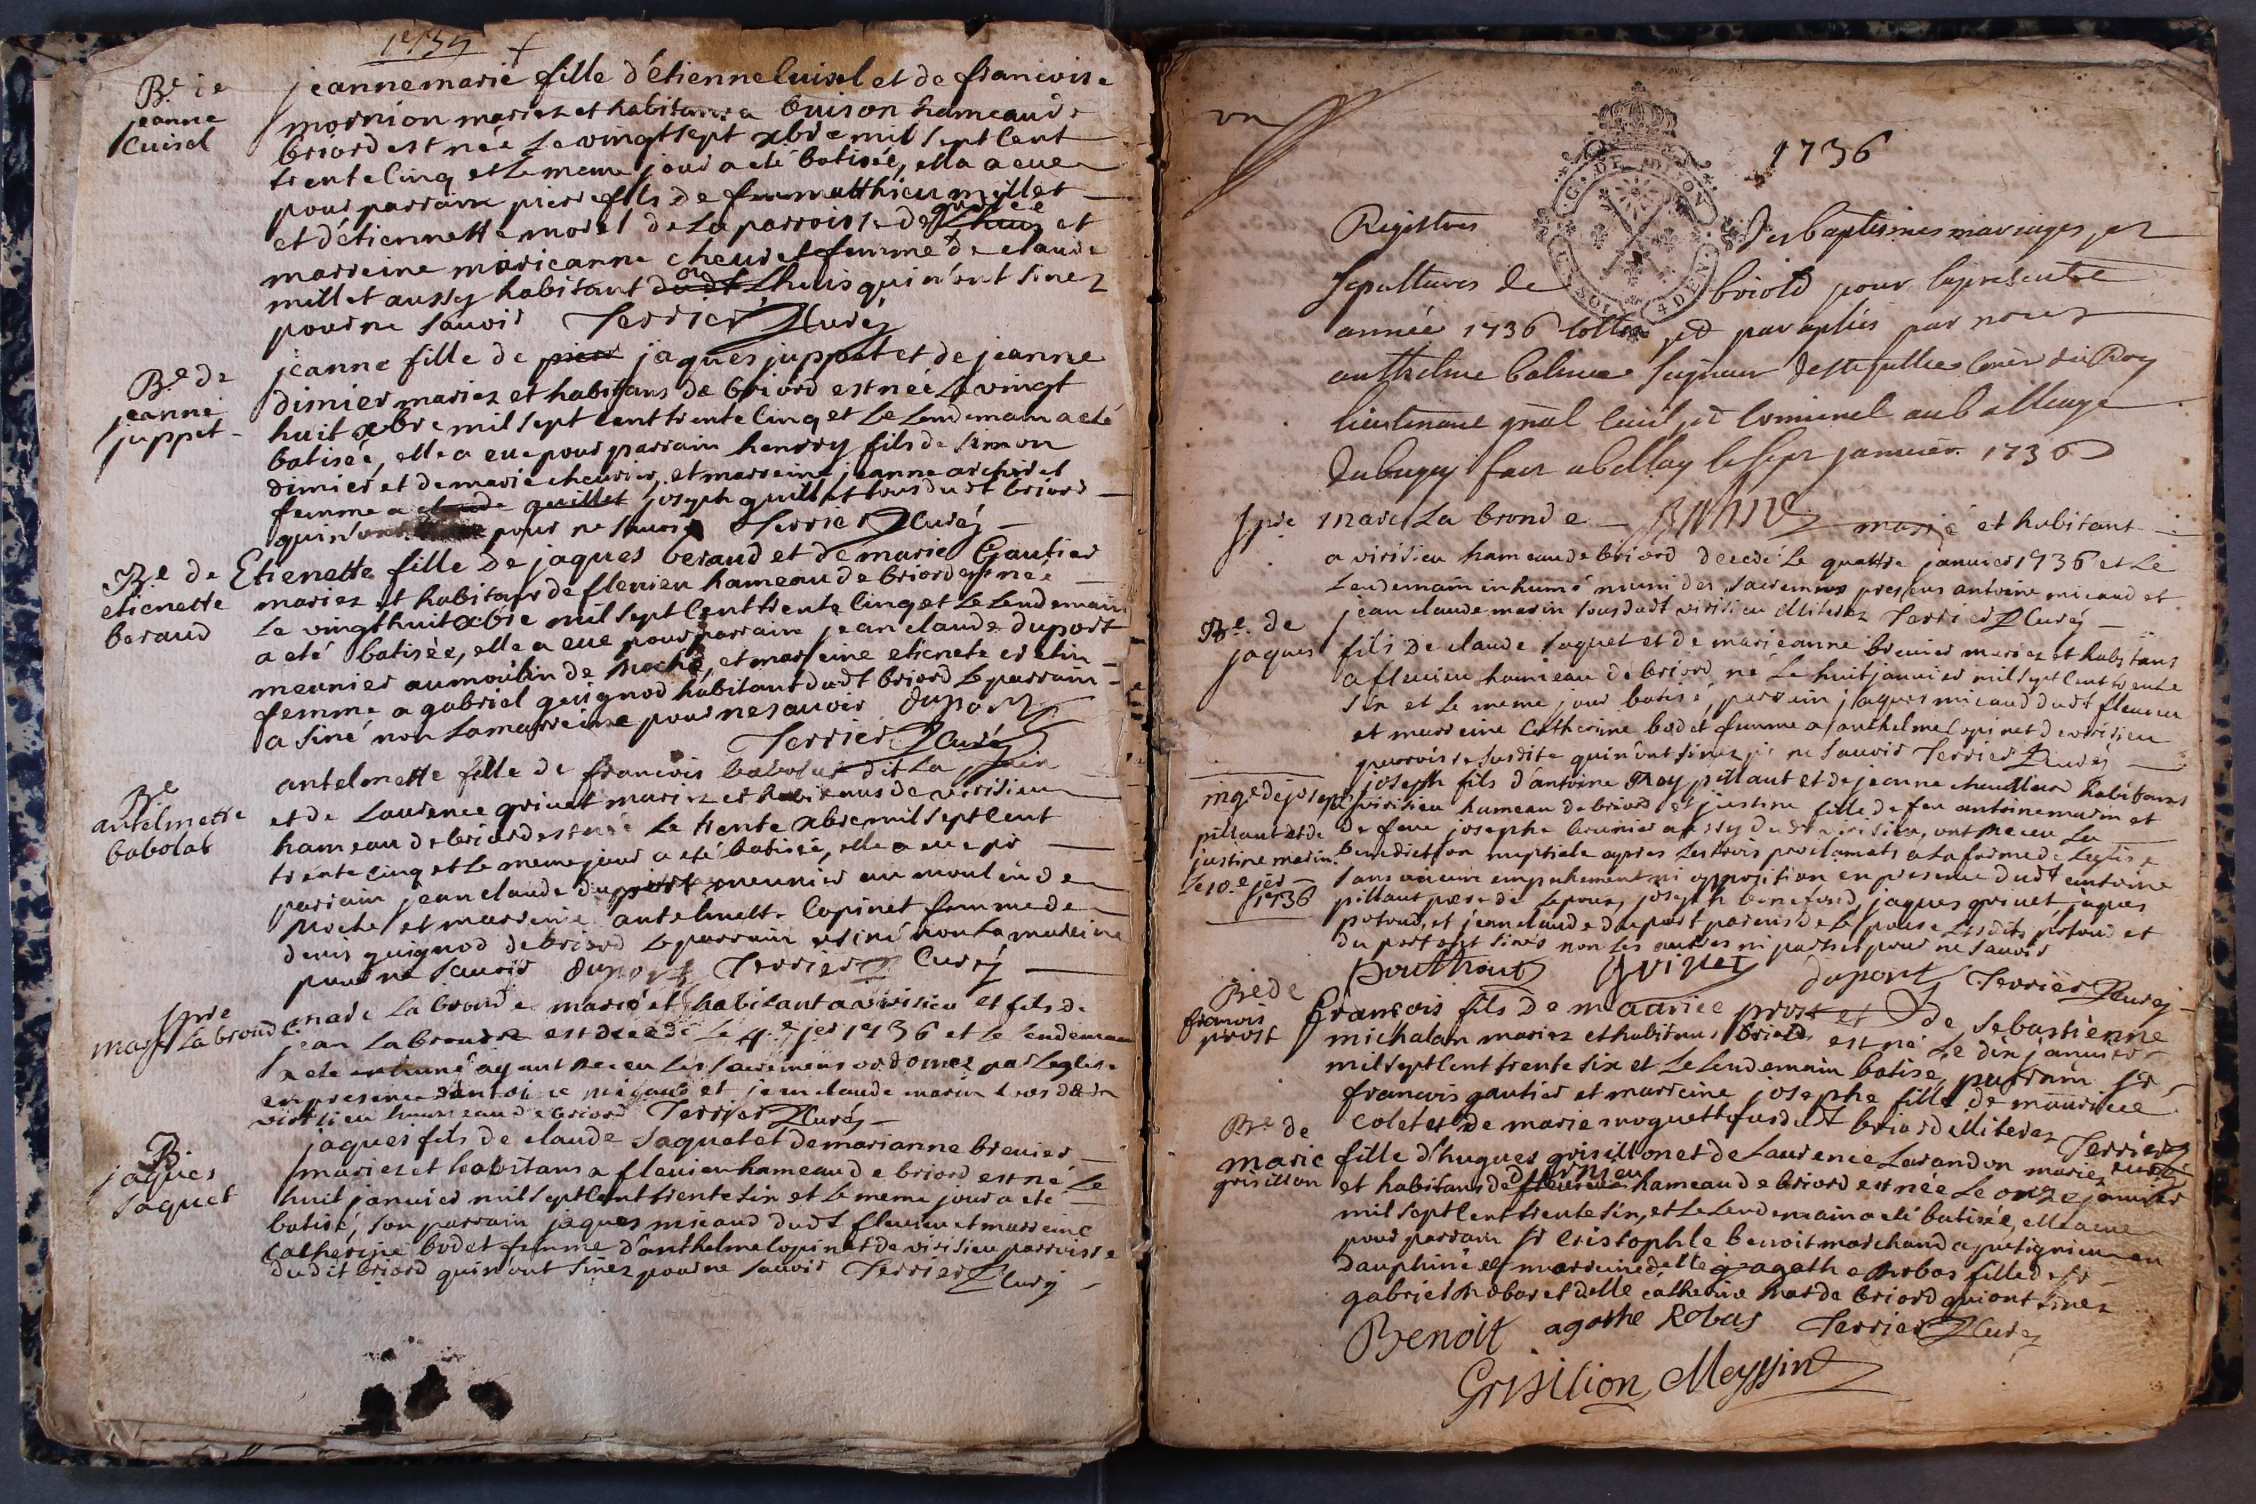 1735
Be de
jeanne
Cuisel
jeanne marie fille d'etienne Cuisel et de francoise
mornion mariez et habitans a buison hameau de
briord est née Le vingt sept xbre mil sept Cent
trente Cinq et Le meme jour a eté batisée, ella a eue
pour parrain pierre fils de feu matthieu millet
et d'etiennette morel de La parroisse de et
marreine marieanne cheuret femme de claude
millet aussy habitant Lhuis qui n'ont sinez
pour ne sauoir Terrier Curéj
Be de
jeanne
juppet
jeanne fille de pierre jaques juppet et de jeanne
dimier mariez et habitans de briord est née Le vingt
huit xbre mil sept Cent trente Cinq et Le Lendemain a eté
batisée, elle a eue pour parrain henrry fils de simon
dimier et de marie cheurier, et marreine jeanne archiret
femme a claude guillet joseph guillet tous dudt briord
qui n'ont pour ne sauoir Terrier Curéj
Be de
etienette
beraud
Etienette fille de jaques beraud et de marie Gautier
mariez et habitans de fleuieu hameau de briord est née
Le vingt huit xbre mil sept Cent trente Cinq et Le Lendemain
a eté batisée, elle a eue pour parrain jean claude duport
meunier au moulin de Roche, et marreine etienete
femme a gabriel guignod habitant dudt briord Le parrain
a siné non La marreine pour ne sauoir duport
Terrier Curéj
Be
antelmette
babolat
antelmette fille de francois babolat dit La
et de Laurence griuet mariez et habitans de virisieu
hameau de briord est née Le trente xbre mil sept Cent
trente Cinq et Le meme jour a eté batisée, elle a eue pr
parrain jean claude duport meunier au moulin de
Roche et marreine antelmette Copinet femme de
denis guignod de briord Le parrain a siné non La marreine
pour ne sauoir duport Terrier Curéj
Spre
marc La bronde
marc La bronde marié et habitant a virisieu et fils de
jean La bronde est decedé Le 4e jer 1736 et Le Lendemain
a eté inhumé ayant receu Les sacremens ordonnez par Leglise
en presence d'antoine micaud et jean claude marin tous dudt
virisieu hameau de briord Terrier Curéj
B.
jaques
saquet
jaques fils de claude saquet et de marianne breuier
mariez et habitans a fleuieu hameau de briord est né Le
huit januier mil sept Cent trente six et Le meme jour a eté
batisé, son parrain jaques micaud dudt fleuieu et marreine
Catherine bodet femme d'anthelme Copinet de virisieu parroisse
dudit briord qui n'ont sinez pour ne sauoir Terrier Curéj
G. DE DIJON
SOL 4 DEN
1736
Registres des baptismes mariages, et
sepultures de briord pour la presente
année 1736 Cottez et paraphés par nous
anthelme balme Seigneur de Ste Jullie Coner du Roy
lieutenant gnal Ciuil et Criminel au balliage
du bugey fait a belley le sept januier 1736
Spre marc La bronde marié et habitant
a virisieu hameau de briord decedé Le quattre januier 1736 et Le
Lendemain inhumé muni des sacremens presens antoine micaud et
jean claude marin tous dudt virisieu illiterez Terrier Curéj
Be. de
jaques
fils de claude saquet et de marieanne breuier mariez et habitans
a fleuieu hameau de briord né Le huit januier mil sept Cent trente
six et Le meme jour batisé, parrain jaques micaud dudt fleuieu
et marreine Catherine bodet femme a anthelme Copinet de virisieu
parroisse susdite qui n'ont sinez pr ne sauoir Terrier Curéj
mge de joseph
pillaut et de
justine marin
Le 10.e jer
1736
joseph fils d'antoine Roy pillaut et de jeanne habitans
virisieu hameau de briord et justine fille de feu antoine marin et
de feue josephe breunier aussy dudt virisieu, ont receu La
benediction nuptiale apres Les trois proclamats a La forme de Leglise
sans aucun empechement ni opposition en presence dudt antoine
pillaut pere de Lepoux, joseph bonefond, jaques griuet, jaques
et jean claude duport parens de Lepouse Lesdits et
duport ont sinés non Les autres ni parties pour ne sauoir
Griuet duport Terrier Curéj
Be de
francois
prost
francois fils de maurice prost et de Sebastienne
michalan mariez et habitans briord est né Le dix januier
mil sept Cent trente six et Le Lendemain batisé, parrain sr
francois gautier et marreine josephe fille de maurice
Colet et de marie moguette dudt briord illiterez Terrier Curéj
Be de
marie
grisillon
fille d'hugues grisillon et de Laurence Larandon mariez
et habitans de hameau de briord est née Le onze januier
mil sept Cent trente six, et Le Lendemain a eté batisée, elle a eue
pour parrain sr Cristophle benoit marchand a quirieu en
dauphiné et marreine delle agathe Robas fille de sr
gabriel Robas et delle catherine de briord qui ont sinez
Benoit agathe Robas Terrier Curéj
Grisillon Meyssin